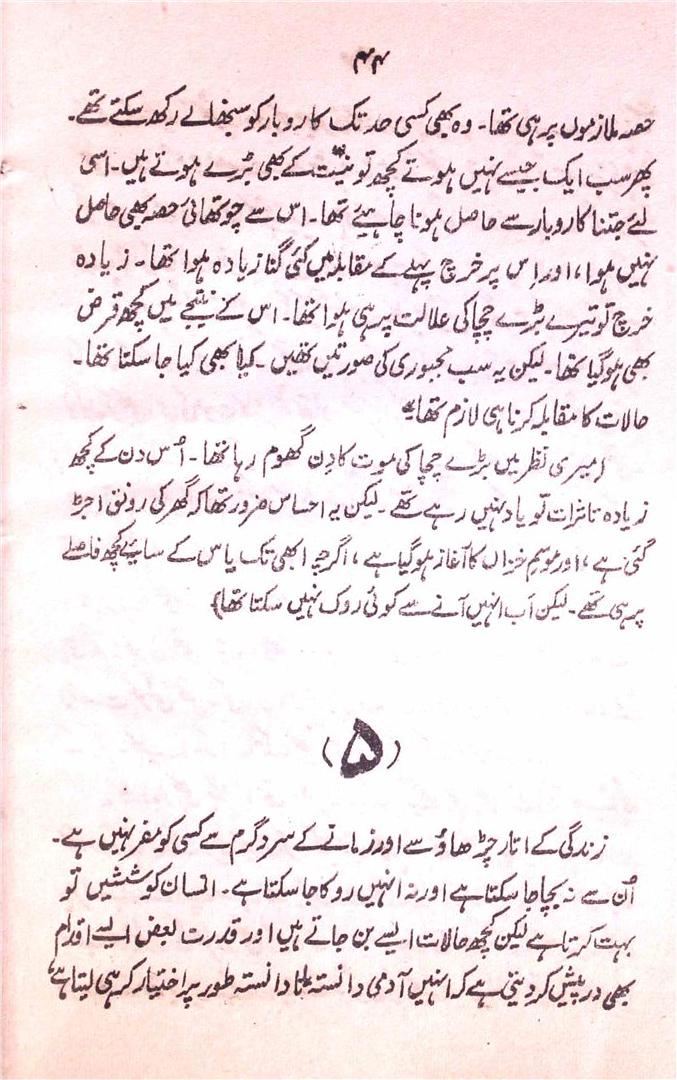 ۴۴
حصہ ملازموں پر ہی تھا۔ وہ بھی کسی حد تک کاروبار کو سنبھالے رکھ سکتے تھے۔
پھر سب ایک جیسے نہیں ہوتے کچھ تو نیت کے بھی بڑے ہوتے ہیں۔ اسی
لئے جتنا کاروبار سے حاصل ہونا چاہیئے تھا۔ اس سے چوتھائی حصہ بھی حاصل
نہیں ہوا، اور اِس پر خرچ پہلے کے مقابلہ میں کئی گنا زیادہ ہوا تھا۔ زیادہ
خرچ تو تیرے بڑے چچا کی علالت پر ہی ہوا تھا۔ اس کے نتیجے میں کچھ قرض
بھی ہو گیا تھا۔ لیکن یہ سب مجبوری کی صورتیں تھیں۔ کیا بھی کیا جا سکتا تھا۔
حالات کا مقابلہ کرنا ہی لازم تھا۔"
(میری نظر میں بڑے چچا کی موت کا دِن گھوم رہا تھا۔ اُس دن کے کچھ
زیادہ تاثرات تو یاد نہیں رہے تھے۔ لیکن یہ احساس ضرور تھا کہ گھر کی رونق اجڑ
گئی ہے، اور موسمِ خزاں کا آغاز ہو گیا ہے، اگرچہ ابھی تک یاس کے سایے کچھ فاصلے
پر ہی تھے۔ لیکن اَب انہیں آنے سے کوئی روک نہیں سکتا تھا)
(۵)
زندگی کے اتار چڑھاؤ سے اور زمانے کے سرد گرم سے کسی کو مفر نہیں ہے۔
اُن سے نہ بچا جا سکتا ہے اور نہ انہیں روکا جا سکتا ہے۔ انسان کوششیں تو
بہت کرتا ہے لیکن کچھ حالات ایسے بن جاتے ہیں اور قدرت بعض ایسے اقدام
بھی درپیش کر دیتی ہے کہ انہیں آدمی دانستہ یا نادانستہ طور پر اختیار کر ہی لیتا ہے،